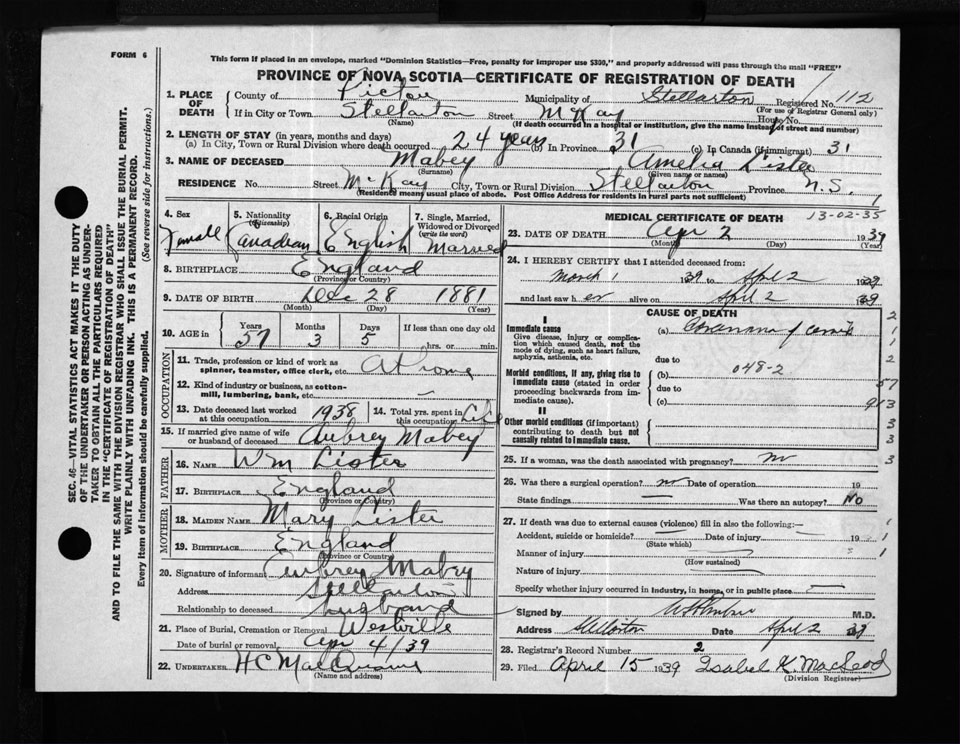 FORM 6
This form if placed in an envelope, marked "Dominion Statistics—Free, penalty for improper use $300," and properly addressed will pass through the mail "FREE"
PROVINCE OF NOVA SCOTIA—CERTIFICATE OF REGISTRATION OF DEATH
SEC. 46—VITAL STATISTICS ACT MAKES IT THE DUTY
OF THE UNDERTAKER OR PERSON ACTING AS UNDER-
TAKER TO OBTAIN ALL THE PARTICULARS REQUIRED
IN THE "CERTIFICATE OF REGISTRATION OF DEATH"
AND TO FILE THE SAME WITH THE DIVISION REGISTRAR WHO SHALL ISSUE THE BURIAL PERMIT.
WRITE PLAINLY WITH UNFADING INK. THIS IS A PERMANENT RECORD.
Every item of information should be carefully supplied. (See reverse side for instructions.)
1. PLACE OF DEATH County of Pictou Municipality of Stellarton Registered No. 112
(For use of Registrar General only)
If in City or Town Stellarton Street McKay House No.
(Name) (If death occurred in a hospital or institution, give the name instead of street and number)
2. LENGTH OF STAY (in years, months and days)
(a) In City, Town or Rural Division where death occurred 24 years (b) In Province 31 (c) In Canada (if immigrant) 31
3. NAME OF DECEASED Mabey Amelia Lister
(Surname) (Given name or names)
RESIDENCE No. Street McKay City, Town or Rural Division Stellarton Province N.S.
(Residence means usual place of abode. Post Office Address for residents in rural parts not sufficient) 1
4. Sex 5. Nationality (Citizenship) 6. Racial Origin 7. Single, Married, Widowed or Divorced (write the word)
Female Canadian English Married
8. BIRTHPLACE England
(Province or Country)
9. DATE OF BIRTH Dec 28 1881
(Month) (Day) (Year)
10. AGE in Years Months Days If less than one day old
57 3 5 hrs. or min.
OCCUPATION
11. Trade, profession or kind of work as spinner, teamster, office clerk, etc. At home
12. Kind of industry or business, as cotton-mill, lumbering, bank, etc. —
13. Date deceased last worked at this occupation 1938 14. Total yrs. spent in this occupation
15. If married give name of wife or husband of deceased Aubrey Mabey
FATHER
16. NAME Wm Lister
17. BIRTHPLACE England
(Province or Country)
MOTHER
18. MAIDEN NAME Mary Lister
19. BIRTHPLACE England
(Province or Country)
20. Signature of informant Aubrey Mabey
Address Stellarton
Relationship to deceased husband
21. Place of Burial, Cremation or Removal Westville
Date of burial or removal Apr 4/39
22. UNDERTAKER H C MacQuarrie
(Name and address)
MEDICAL CERTIFICATE OF DEATH 13-02-35
23. DATE OF DEATH Apr 2 1939
(Month) (Day) (Year)
24. I HEREBY CERTIFY that I attended deceased from:
March 1 1939 to April 2 1939
and last saw her alive on April 2 1939
CAUSE OF DEATH
I
Immediate cause
Give disease, injury or complication which caused death, not the mode of dying, such as heart failure, asphyxia, asthenia, etc.
(a) of cervix
due to
Morbid conditions, if any, giving rise to immediate cause (stated in order proceeding backwards from immediate cause).
(b) 048-2
due to
(c)
II
Other morbid conditions (if important) contributing to death but not causally related to immediate cause.
2
1
1
2
57
913
3
3
3
25. If a woman, was the death associated with pregnancy? no
26. Was there a surgical operation? no Date of operation 19
State findings — Was there an autopsy? No
27. If death was due to external causes (violence) fill in also the following:—
Accident, suicide or homicide? Date of injury — 19
(State which)
Manner of injury
(How sustained)
Nature of injury
Specify whether injury occurred in industry, in home, or in public place —
Signed by M.D.
Address Stellarton Date April 2 1939
28. Registrar's Record Number 2
29. Filed April 15 1939 Isabel K. MacLeod
(Division Registrar)